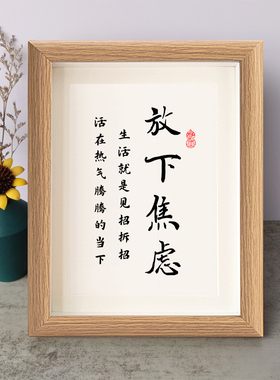 放下焦虑
生活就是见招拆招
活在热气腾腾的当下